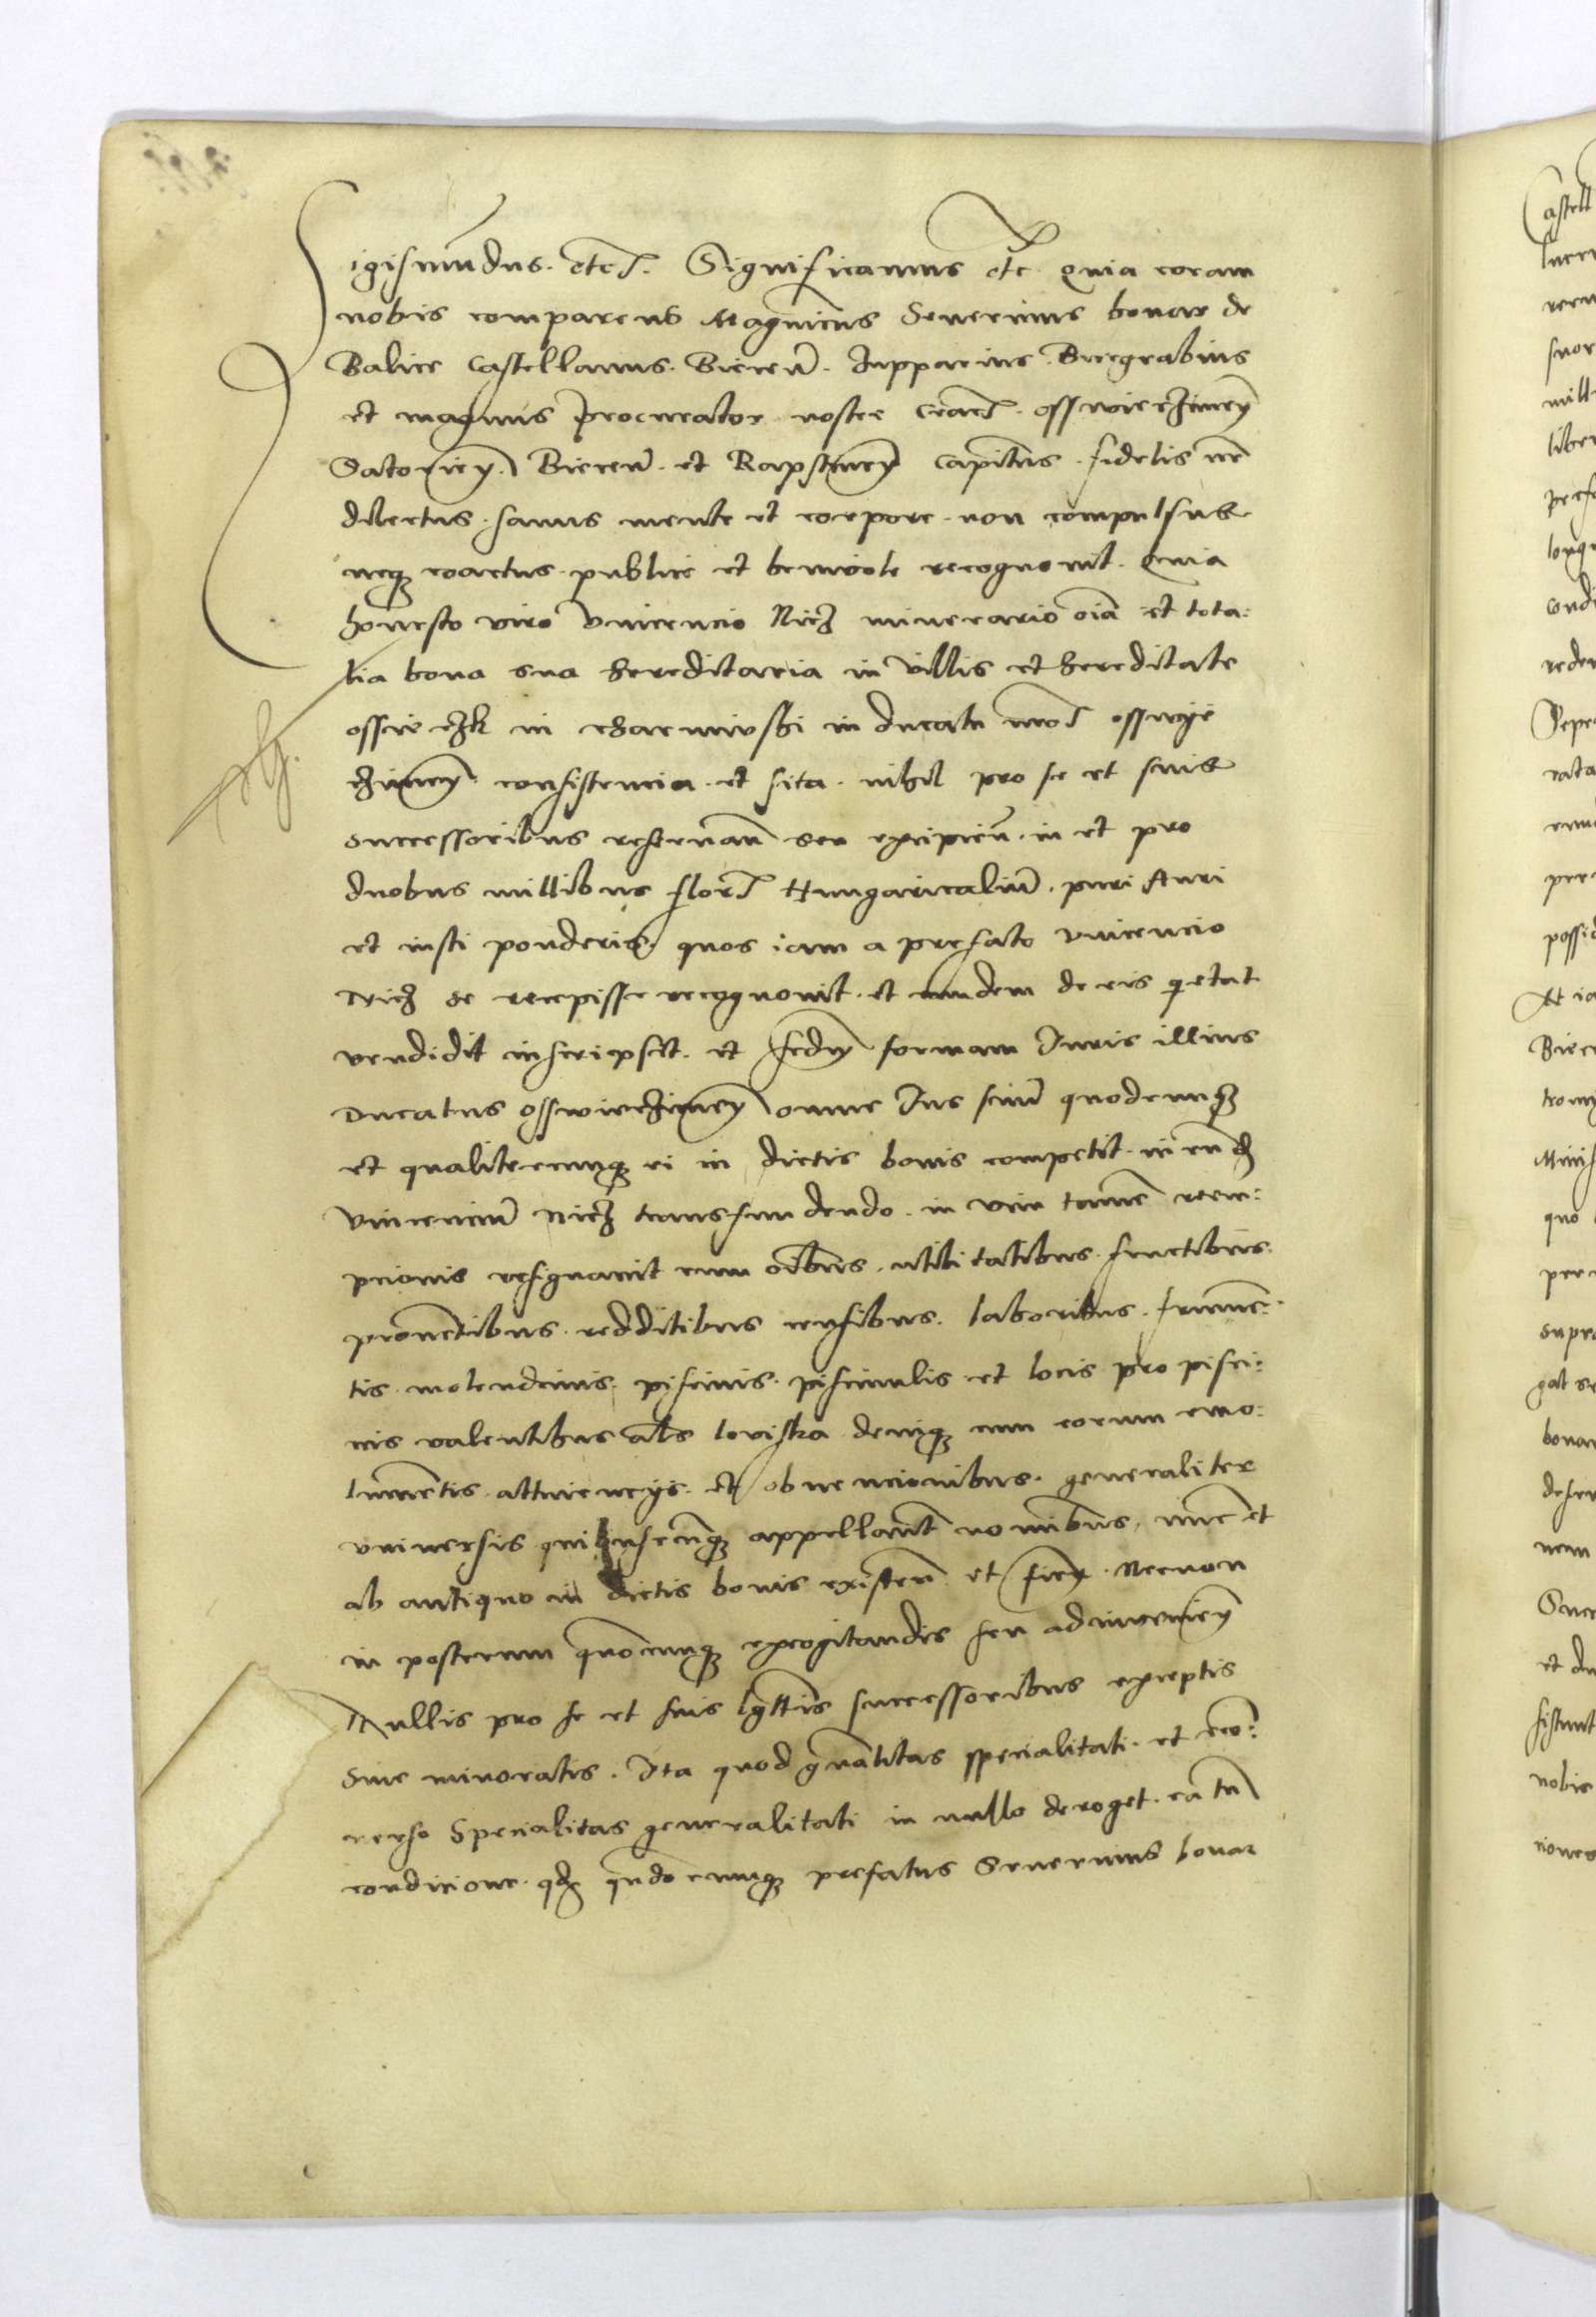 Sigismūdus. etc̄. Significamus etc quia coram
nobis comparens Magnicus Severinus bonar de
Balice Castellanus. Biecen̄. zupparius Burgrabius
et magnus procurator noster Crac̄. osswieczimen̄
Zatorien̄. Biecen̄. et Rapstinen̄ capitn̄s. fidelis nr̄
dilectus. sanus mente et corpore. non compulsus
neq3 coactus. publice et benivole recognovit. Quia
honesto viro Vincencio Nicz minerario oīa et tota:
lia bona sua hereditaria in villis et hereditate
in ducatu nr̄o osswye
czimen̄. consistencia. et sita. nihil pro se et suis
successoribus reservan̄ seu excipien̄. in et pro
duobus millibus flor̄ Hungaricaliū. puri Auri
et iusti ponderis. quos iam a prefato Vincencio
Nicz se recepisse recognovit. et eundem de eis q̄etat
vendidit inscripsit. et scdm̄ formam Iuris illius
Ducatus osswieczimen̄ omne Ius suū quodcunq3
et qualitercunq3 ei in dictis bonis competit. in eūd3
Vincenciū Nicz transfundendo. in vim tamē reem:
pcionis resignavit cum oībus. utilitatibus. fructibus.
provētibus. redditibus censibus. laboribus. frumē:
tis. molendinis. piscinis. piscinulis. et locis pro pisci:
nis valentibus als loviska deniq3 cum eorum emo:
lumētis. attinencijs. et obvencionibus. generaliter
universis quibuscūq3 appellant̄ nominibus, nūc et
ab antiquo in dictis bonis existen̄ et fien̄. Necnon
in posterum quōcunq3 excogitandis seu adinvenien̄
Nullis pro se et suis lgttīs successoribus exceptis
sive minoratis. Ita quod gn̄alitas specialitati. et ecō:
verso Specialitas generalitati in nullo deroget. ea tn̄
condicione. qd3 qn̄docunq3 prefatus Severinus bonar